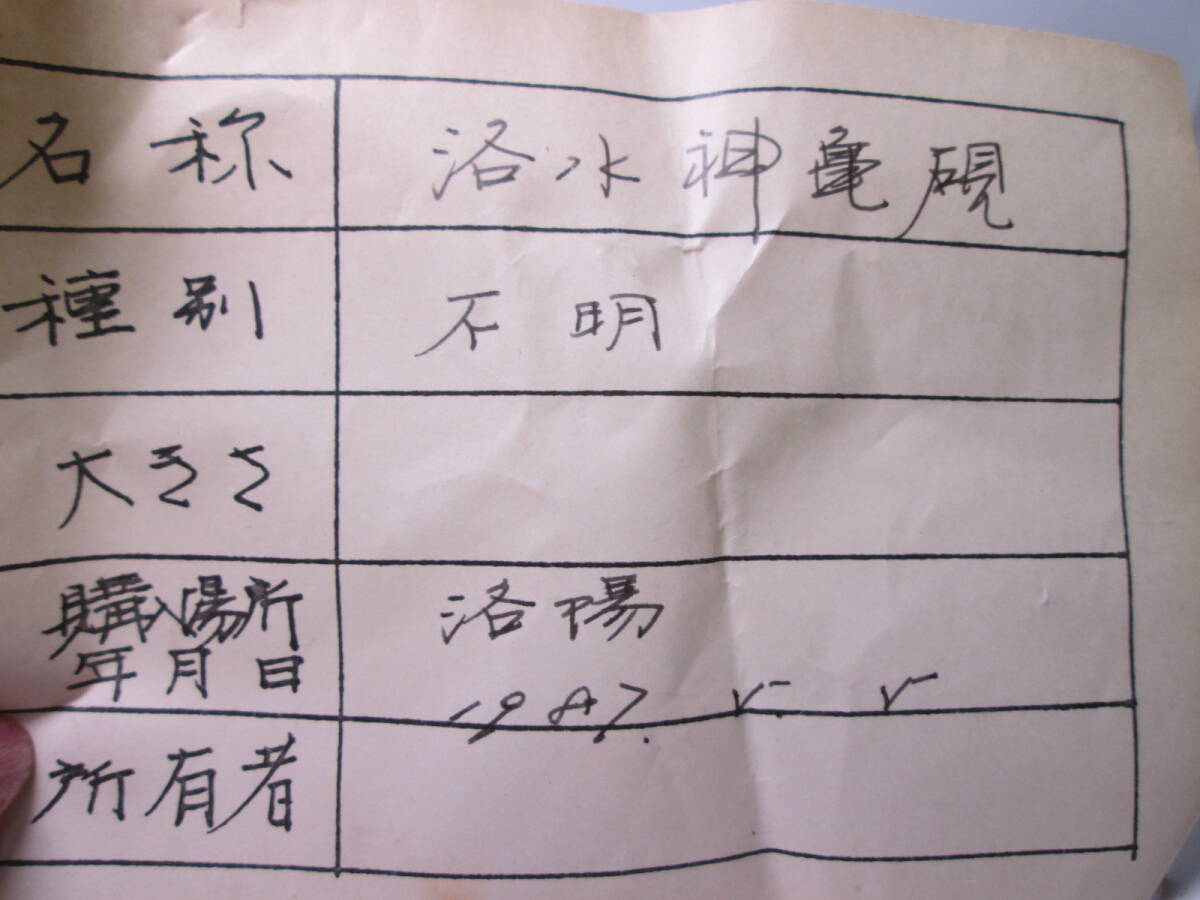 名称 洛水神亀硯
種別 不明
大きさ
購入場所 洛陽
年月日 1987. 5. 5
所有者